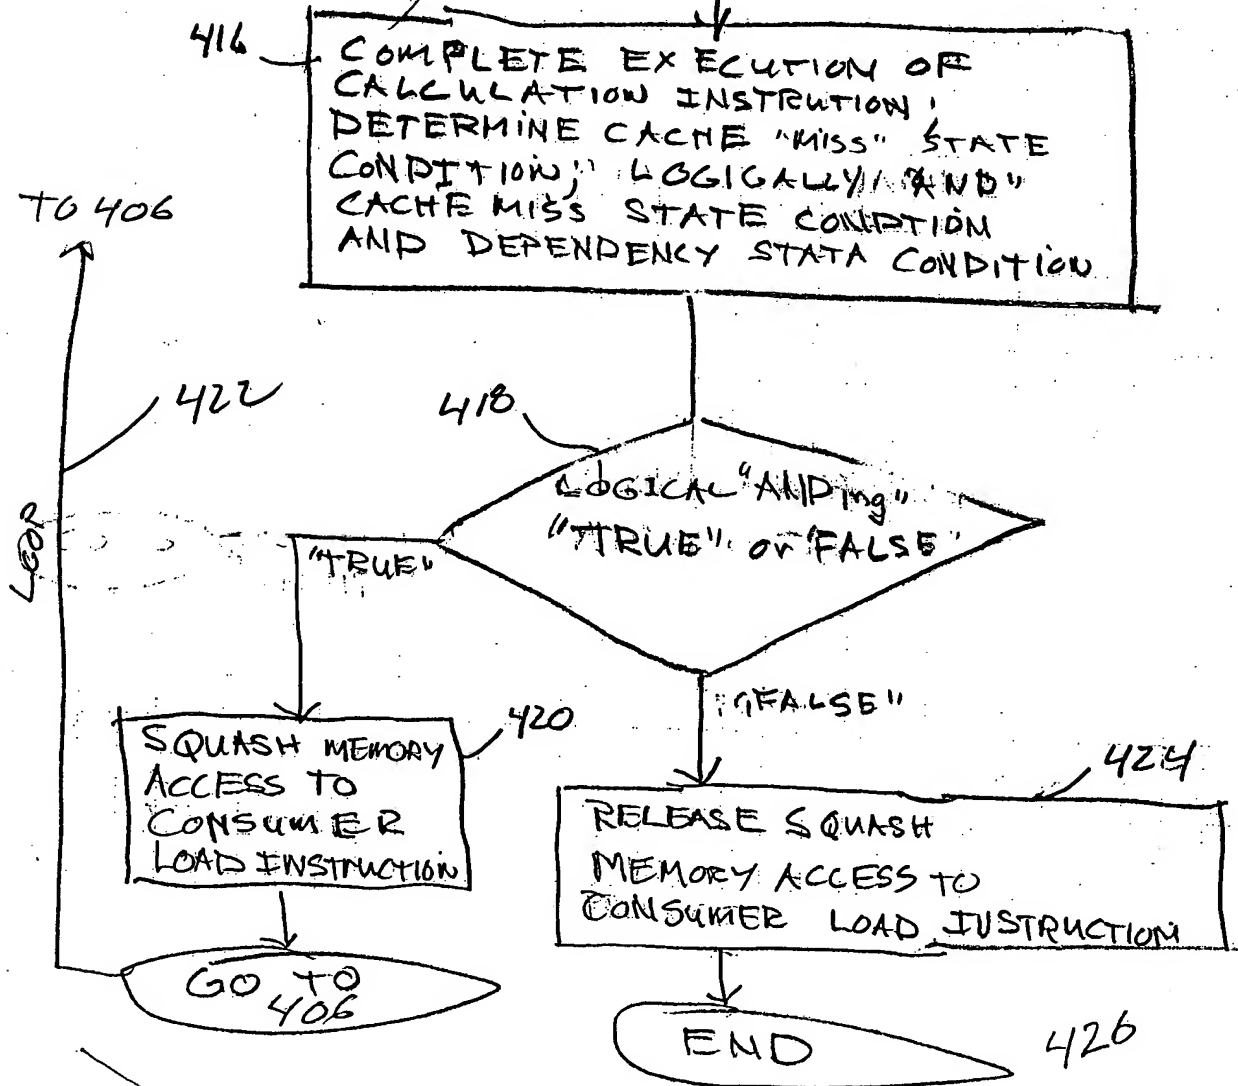 416
COMPLETE EXECUTION OF
CALCULATION INSTRUTION;
DETERMINE CACHE "MISS" STATE
CONDITION; LOGICALLY "AND"
CACHE MISS STATE CONDTION
AND DEPENDENCY STATA CONDITION
TO 406
422
418
LOGICAL "ANDing"
"TRUE" or "FALSE"
LOOP
"TRUE"
"FALSE"
420
SQUASH MEMORY
ACCESS TO
CONSUMER
LOAD INSTRUCTION
424
RELEASE SQUASH
MEMORY ACCESS TO
CONSUMER LOAD INSTRUCTION
GO TO
406
END
426